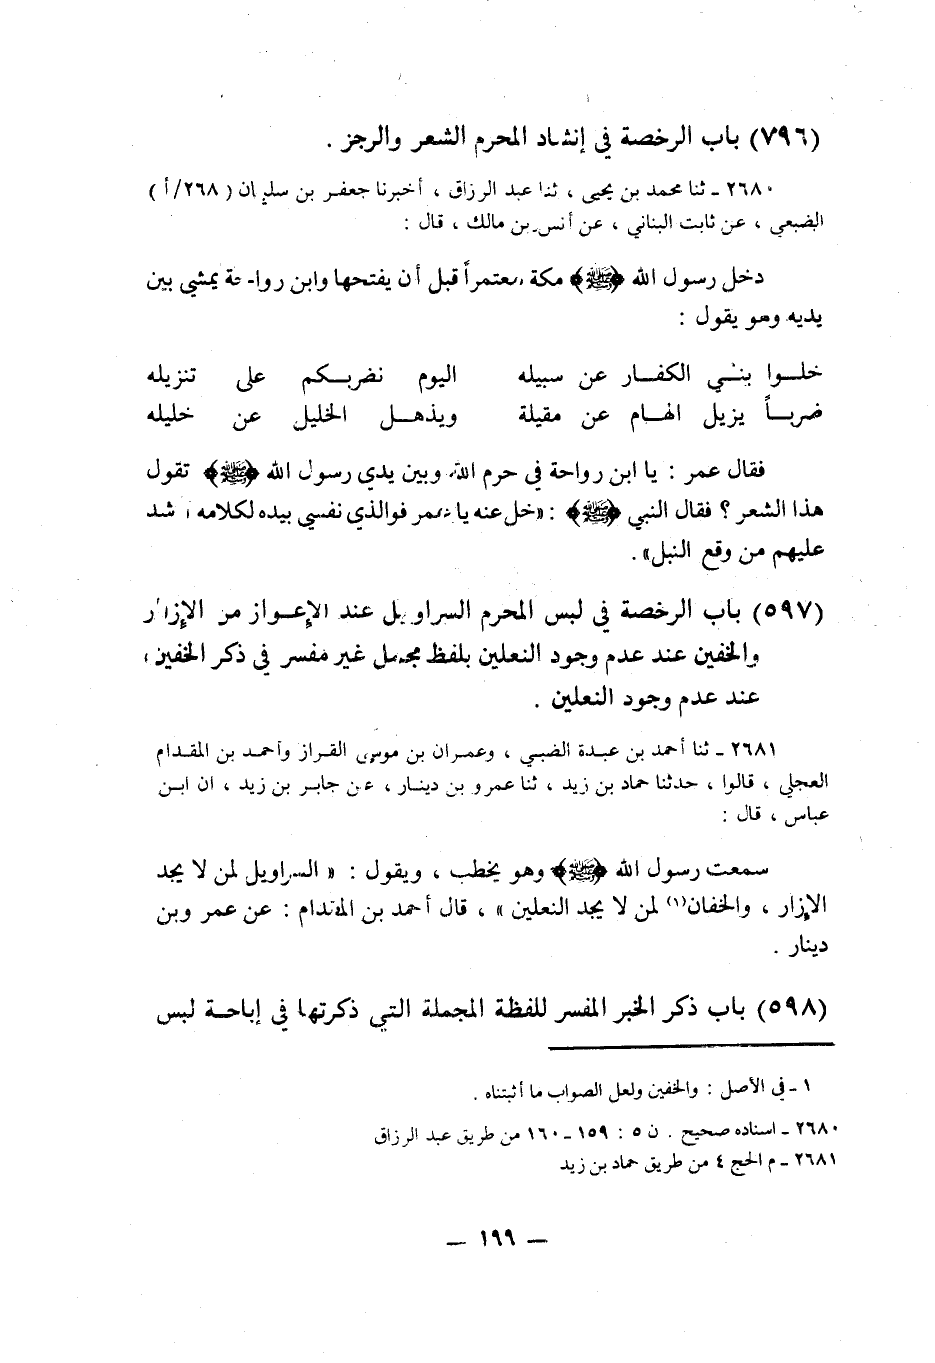 (٧٩٦) باب الرخصة في إنشاد المحرم الشعر والرجز .
٢٦٨٠ ـ ثنا محمد بن يحيى ، ثنا عبد الرزاق ، أخبرنا جعفر بن سليمان ( ٢٦٨/أ )
الضبعي ، عن ثابت البناني ، عن أنس بن مالك ، قال :
دخل رسول الله ﴿ﷺ﴾ مكة معتمراً قبل أن يفتحها وابن رواحة يمشي بين
يديه وهو يقول :
خلــوا بنــي الكفــار عن سبيله اليوم نضربــكم على تنزيله
ضربــاً يزيل الهــام عن مقيلة ويذهــل الخليل عن خليله
فقال عمر : يا ابن رواحة في حرم الله وبين يدي رسول الله ﴿ﷺ﴾ تقول
هذا الشعر ؟ فقال النبي ﴿ﷺ﴾ : «خل عنه يا عمر فوالذي نفسي بيده لكلامه أشد
عليهم من وقع النبل» .
(٥٩٧) باب الرخصة في لبس المحرم السراويل عند الإعــواز من الإزار
والخفين عند عدم وجود النعلين بلفظ مجمل غير مفسر في ذكر الخفين ،
عند عدم وجود النعلين .
٢٦٨١ ـ ثنا أحمد بن عبدة الضبي ، وعمران بن موسى القزاز وأحمد بن المقدام
العجلي ، قالوا ، حدثنا حماد بن زيد ، ثنا عمرو بن دينار ، عن جابر بن زيد ، ان ابن
عباس ، قال :
سمعت رسول الله ﴿ﷺ﴾ وهو يخطب ، ويقول : « السراويل لمن لا يجد
الإزار ، والخفان(١) لمن لا يجد النعلين » ، قال أحمد بن المقدام : عن عمر وبن
دينار .
(٥٩٨) باب ذكر الخبر المفسر للفظة المجملة التي ذكرتها في إباحة لبس
١ ـ في الأصل : والخفين ولعل الصواب ما أثبتناه .
٢٦٨٠ ـ اسناده صحيح . ن ٥ : ١٥٩ ـ ١٦٠ من طريق عبد الرزاق
٢٦٨١ ـ م الحج ٤ من طريق حماد بن زيد
— ١٩٩ —